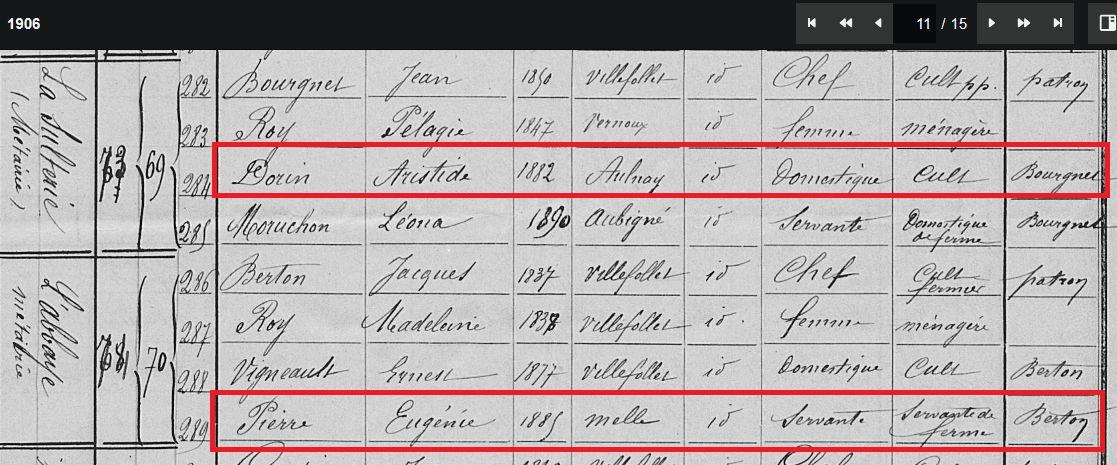 1906
11 / 15
282 Bourgnet Jean 1850 Villefollet id Chef Cult pp. patron
283 Roy Pélagie 1847 Vernoux id femme ménagère
284 Dorin Aristide 1882 Aulnay id Domestique Cult Bourgnet
285 Moruchon Léona 1890 Aubigné id Servante Domestique de ferme Bourgnet
286 Berton Jacques 1837 Villefollet id Chef Cult fermier patron
287 Roy Madeleine 1838 Villefollet id femme ménagère
288 Vigneault Ernest 1877 Villefollet id Domestique Cult Berton
289 Pierre Eugénie 1885 melle id Servante Servante de ferme Berton
(Métairie)
69
L'abbaye
métairie
70